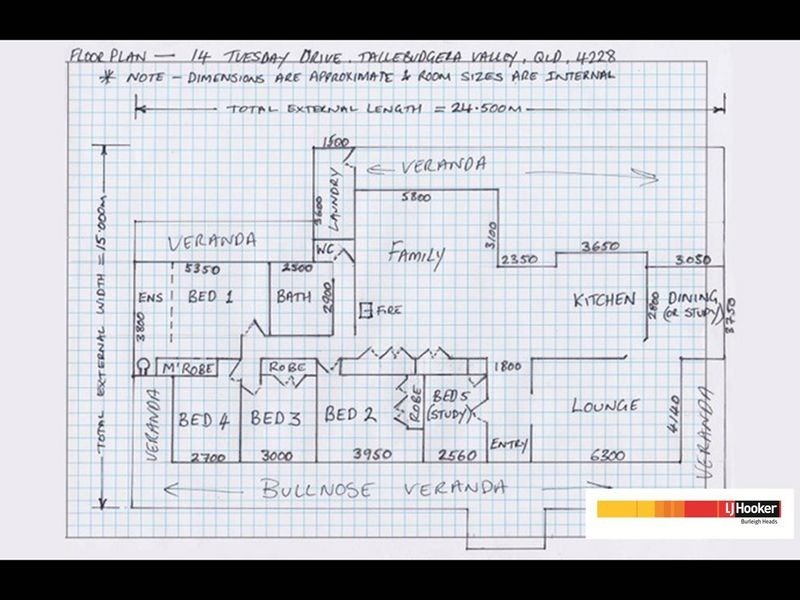 FLOOR PLAN — 14 TUESDAY DRIVE, TALLEBUDGERA VALLEY, QLD, 4228
* NOTE – DIMENSIONS ARE APPROXIMATE & ROOM SIZES ARE INTERNAL
TOTAL EXTERNAL LENGTH = 24.500M
TOTAL EXTERNAL WIDTH = 15.000M
1500
VERANDA
3600
LAUNDRY
5800
3100
VERANDA
WC
FAMILY
2350
3650
3050
5350
2500
ENS
BED 1
BATH
2900
FIRE
KITCHEN
2800
DINING
(OR STUDY)
3750
3800
M'ROBE
ROBE
1800
VERANDA
BED 4
BED 3
BED 2
ROBE
BED 5
(STUDY)
LOUNGE
4140
VERANDA
ENTRY
2700
3000
3950
2560
6300
BULLNOSE VERANDA
LJ Hooker
Burleigh Heads